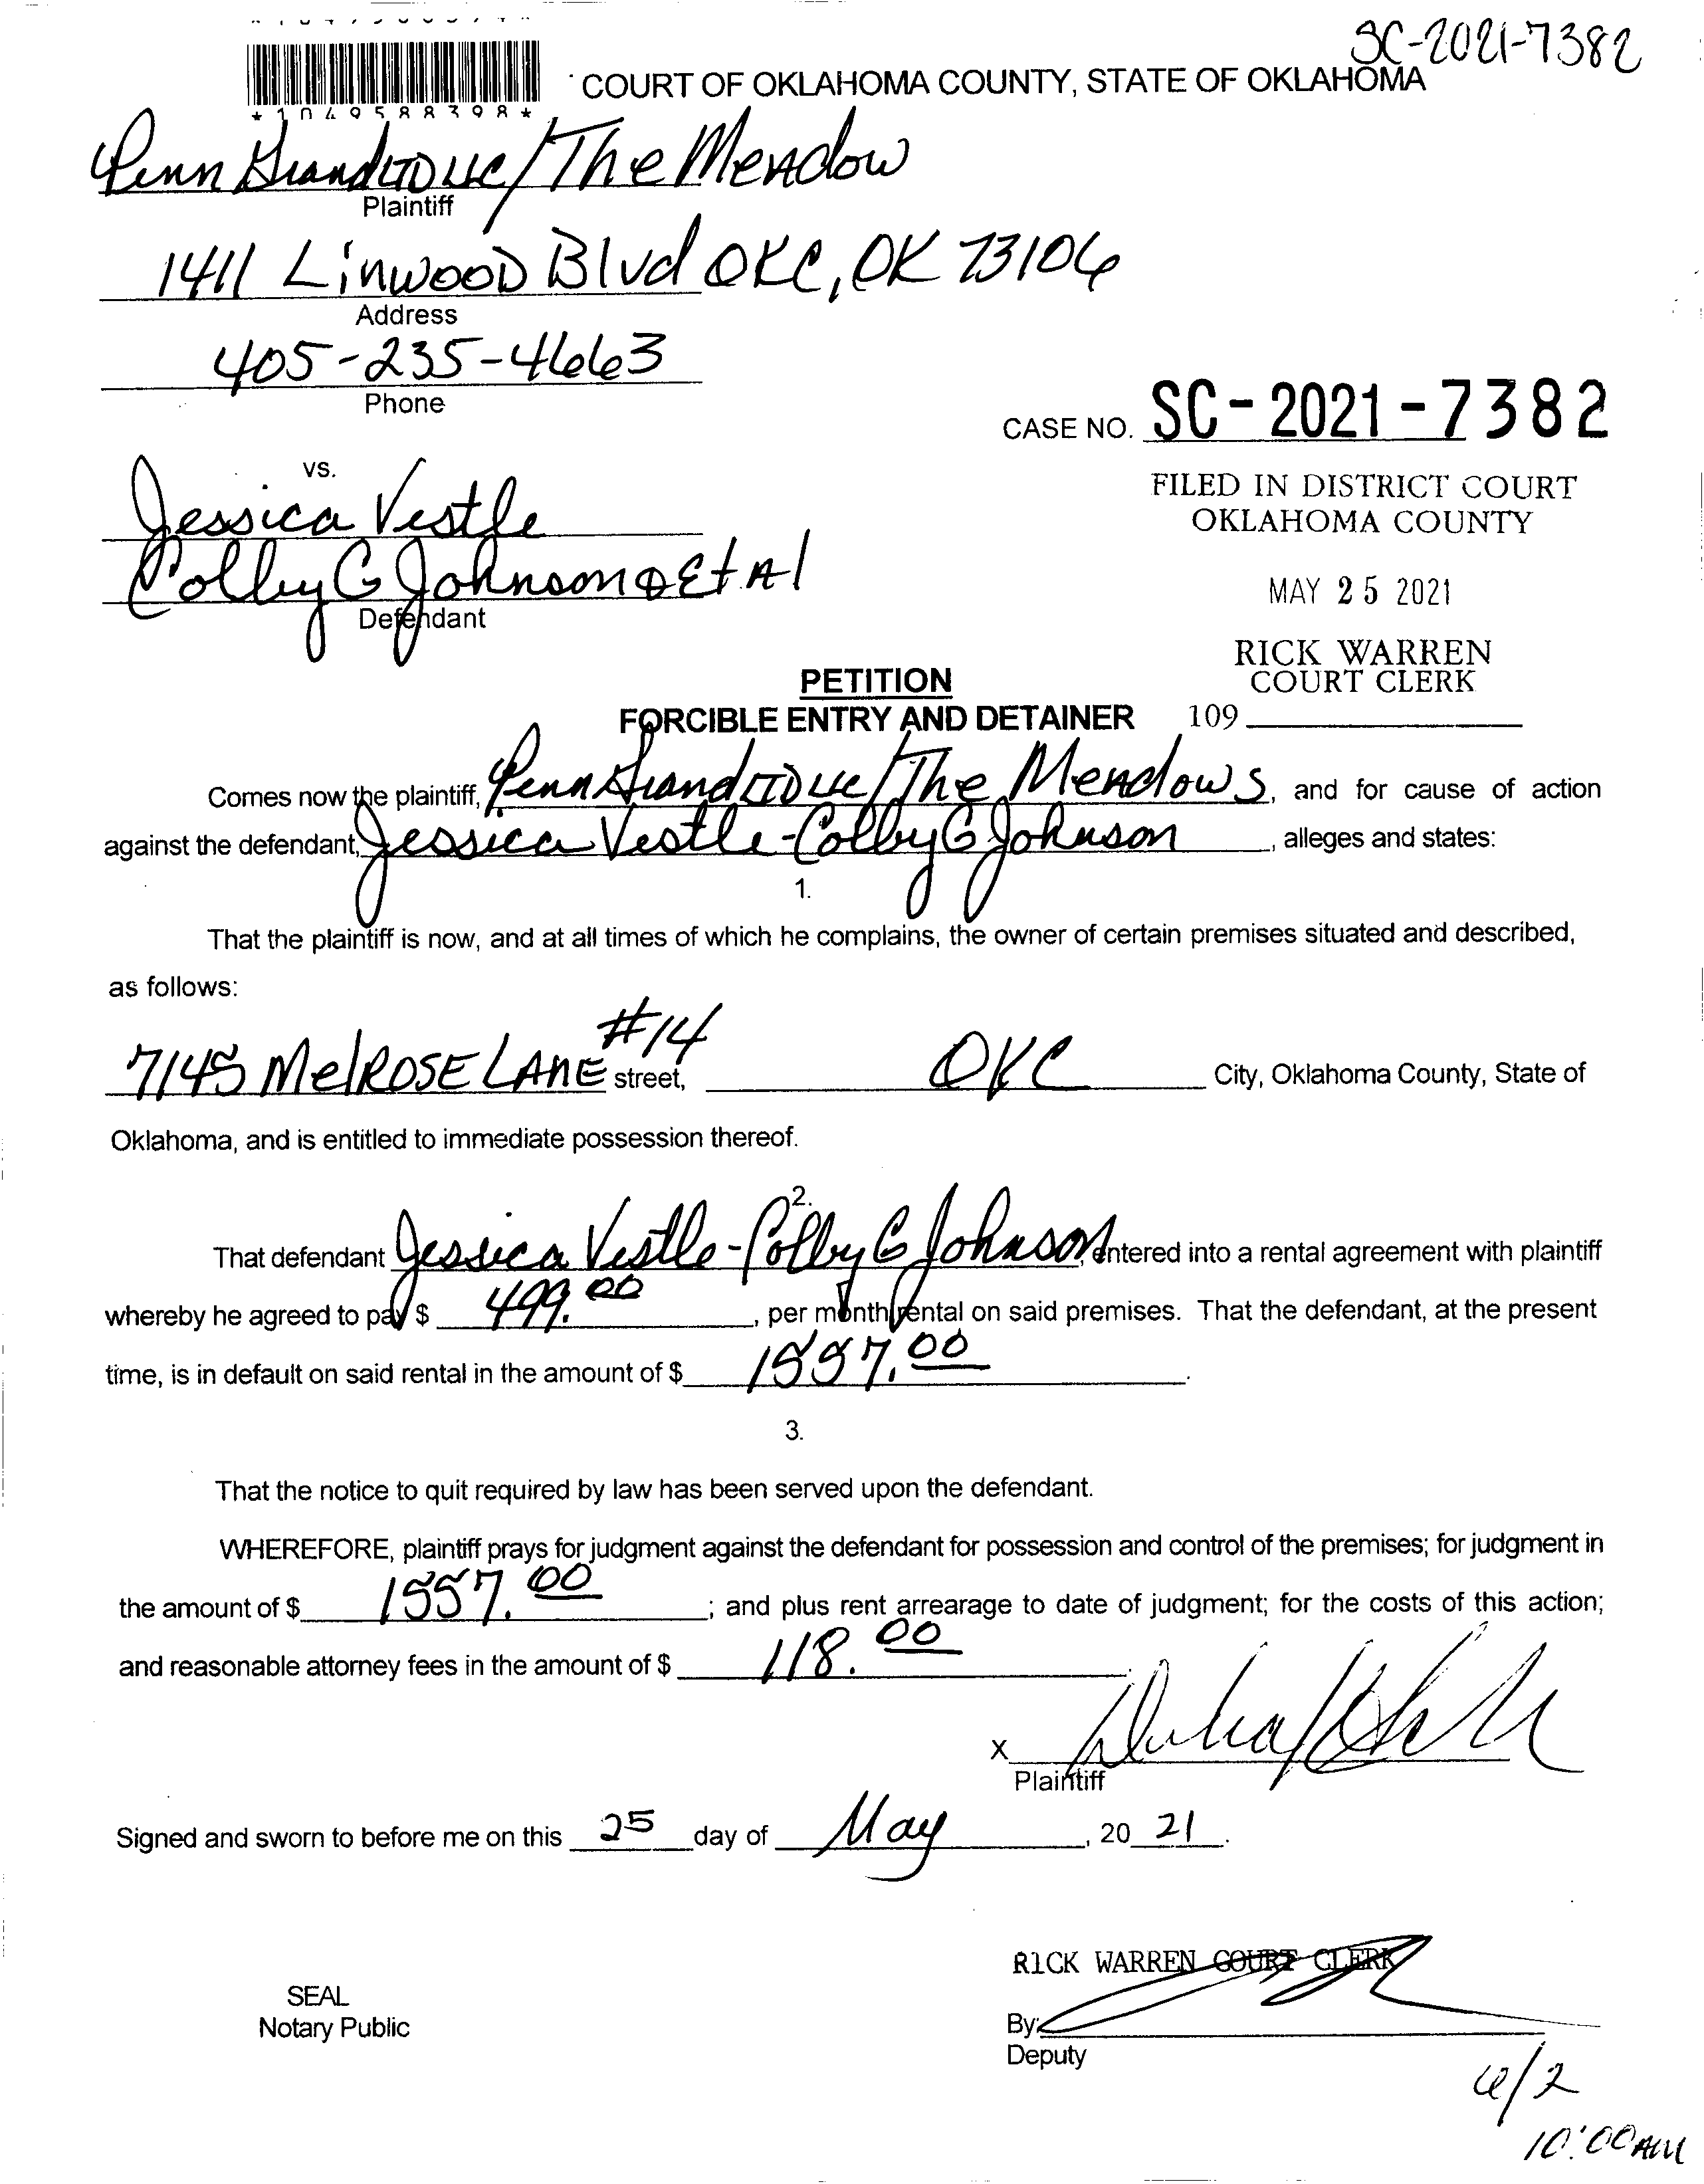 SC-2021-7382
*1049588398*
COURT OF OKLAHOMA COUNTY, STATE OF OKLAHOMA
Penn Grand LTD LLC/The Meadow
Plaintiff
1411 Linwood Blvd OKC, OK 73106
Address
405-235-4663
Phone
CASE NO. SC-2021-7382
vs.
FILED IN DISTRICT COURT
OKLAHOMA COUNTY
Jessica Vestle
Colby G Johnson Et Al
Defendant
MAY 25 2021
RICK WARREN
COURT CLERK
109
PETITION
FORCIBLE ENTRY AND DETAINER
Comes now the plaintiff, Penn Grand LTD LLC/The Meadows, and for cause of action
against the defendant, Jessica Vestle-Colby G Johnson, alleges and states:
1.
That the plaintiff is now, and at all times of which he complains, the owner of certain premises situated and described,
as follows:
7145 MelROSE LANE #14 street, OKC City, Oklahoma County, State of
Oklahoma, and is entitled to immediate possession thereof.
2.
That defendant Jessica Vestle-Colby G Johnson, entered into a rental agreement with plaintiff
whereby he agreed to pay $ 499.00, per month rental on said premises. That the defendant, at the present
time, is in default on said rental in the amount of $ 1557.00.
3.
That the notice to quit required by law has been served upon the defendant.
WHEREFORE, plaintiff prays for judgment against the defendant for possession and control of the premises; for judgment in
the amount of $ 1557.00; and plus rent arrearage to date of judgment; for the costs of this action;
and reasonable attorney fees in the amount of $ 118.00
X
Plaintiff
Signed and sworn to before me on this 25 day of May, 20 21.
RICK WARREN COURT CLERK
SEAL
Notary Public
By:
Deputy
6/2
10:00AM